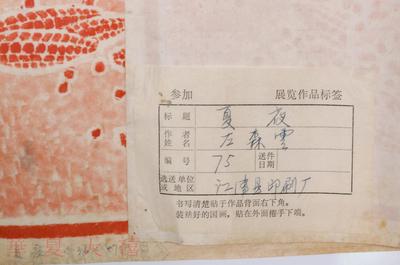 参加 展览作品标签
标题 夏夜
作者姓名 左森雲
编号 75 送件日期
选送单位或地区 江津县印刷厂
书写清楚贴于作品背面右下角。
装裱好的国画，贴在外面楷手下端。